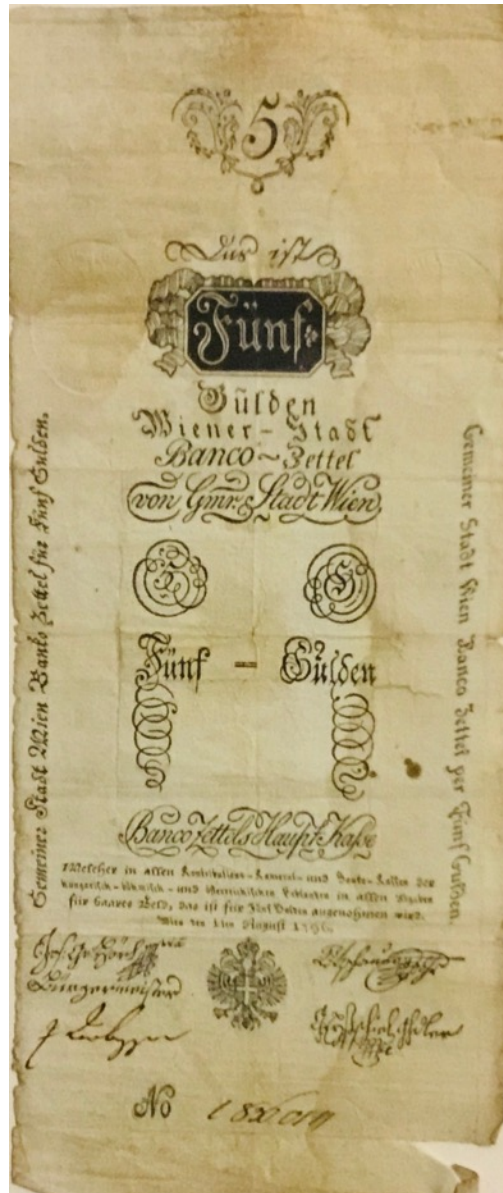 5
Das ist
Fünf
Gülden
Wiener-Stadt
Banco-Zettel
von Gmr. Stadt Wien
5 G
Fünf - Gülden
Banco Zettels Haupt Kasse
Welcher in allen Kontributions-Kameral- und Banko-Kassen der
hungarisch-böhmisch- und österreichischen Erblanden in allen
für baares Geld, das ist für Fünf Gulden angenohmen wird.
Wien den 1ten August 1796
Bürgermeister
No
Gemeiner Stadt Wien Banko Zettel für Fünf Gulden.
Gemeiner Stadt Wien Banco Zettel per Fünf Gulden.